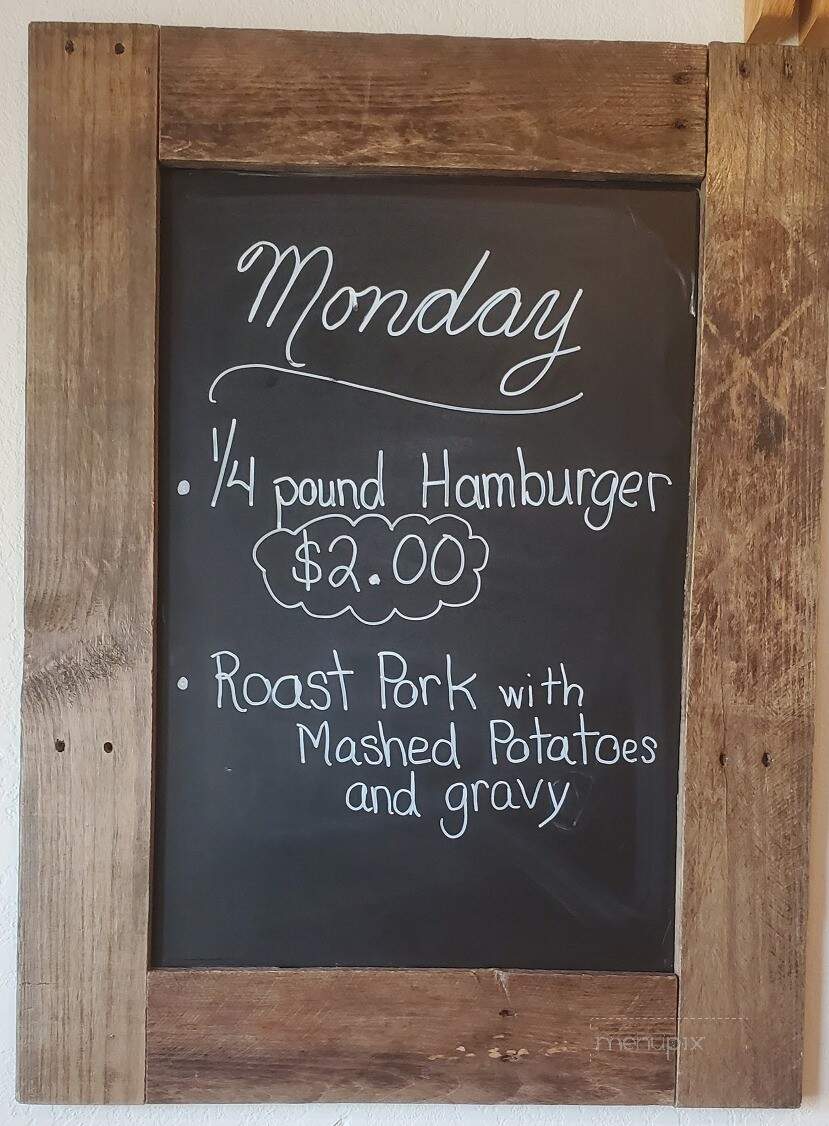 Monday
• 1/4 pound Hamburger
$2.00
• Roast Pork with
Mashed Potatoes
and gravy
menupix